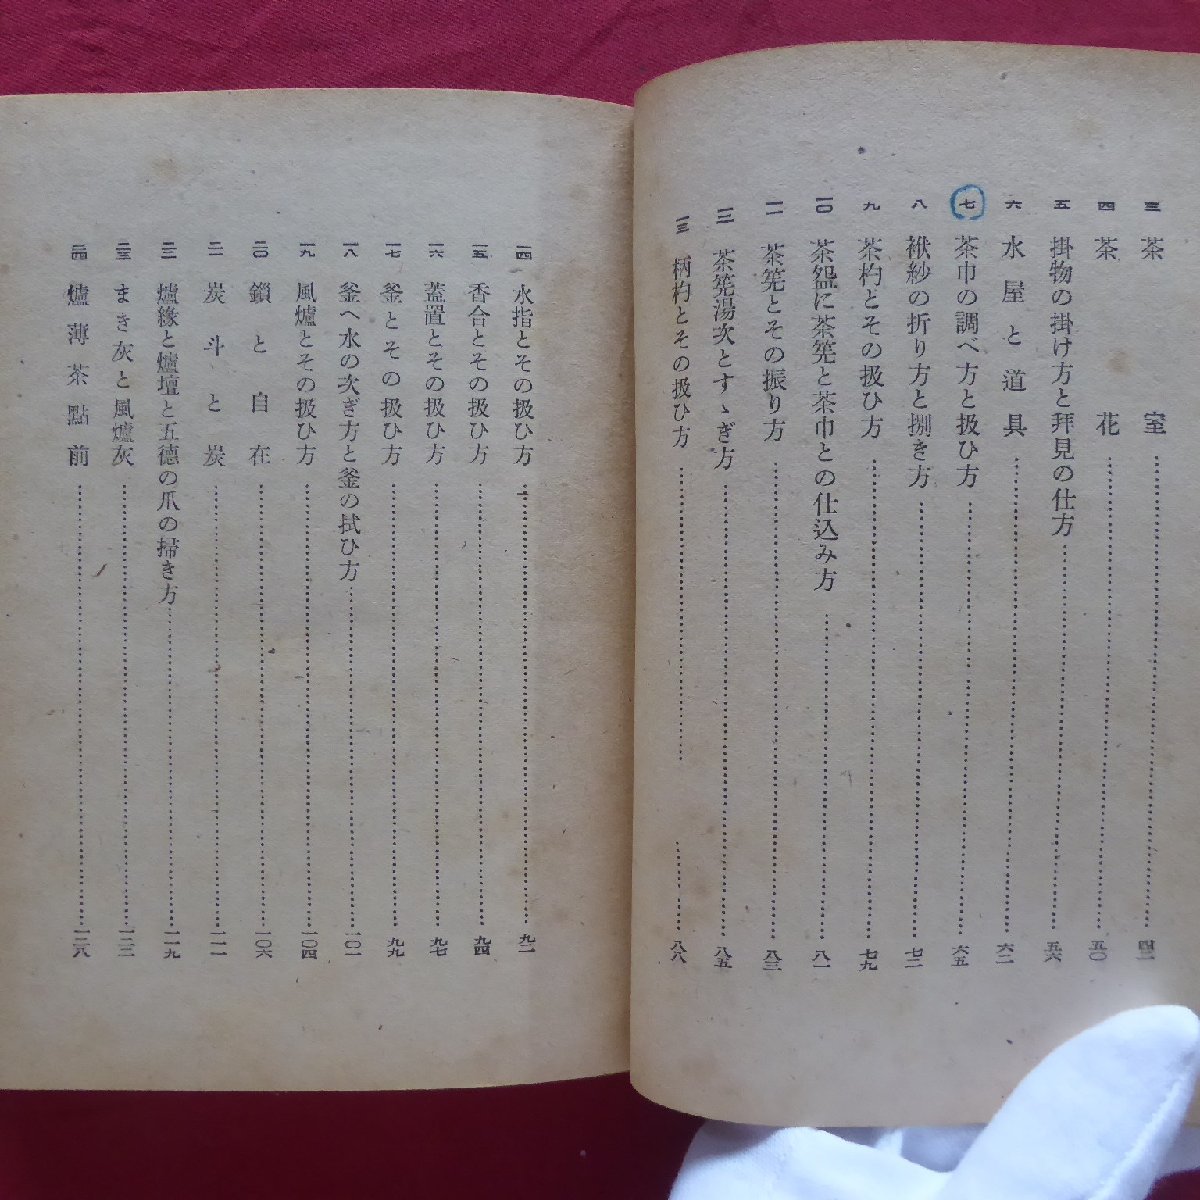 三 茶室 四二
四 茶花 五〇
五 掛物の掛け方と拜見の仕方 五六
六 水屋と道具 六二
七 茶巾の調べ方と扱ひ方 六五
八 袱紗の折り方と捌き方 七二
九 茶杓とその扱ひ方 七九
一〇 茶盌に茶筅と茶巾との仕込み方 八一
一一 茶筅とその振り方 八三
一二 茶筅湯次とすゝぎ方 八五
一三 柄杓とその扱ひ方 八八
一四 水指とその扱ひ方 九二
一五 香合とその扱ひ方 九四
一六 蓋置とその扱ひ方 九七
一七 釜とその扱ひ方 九九
一八 釜へ水の次ぎ方と釜の拭ひ方 一〇一
一九 風爐とその扱ひ方 一〇四
二〇 鎖と自在 一〇六
二一 炭斗と炭 一一一
二二 爐緣と爐壇と五德の爪の掃き方 一一九
二三 まき灰と風爐灰 一二三
二四 爐薄茶點前 一二八